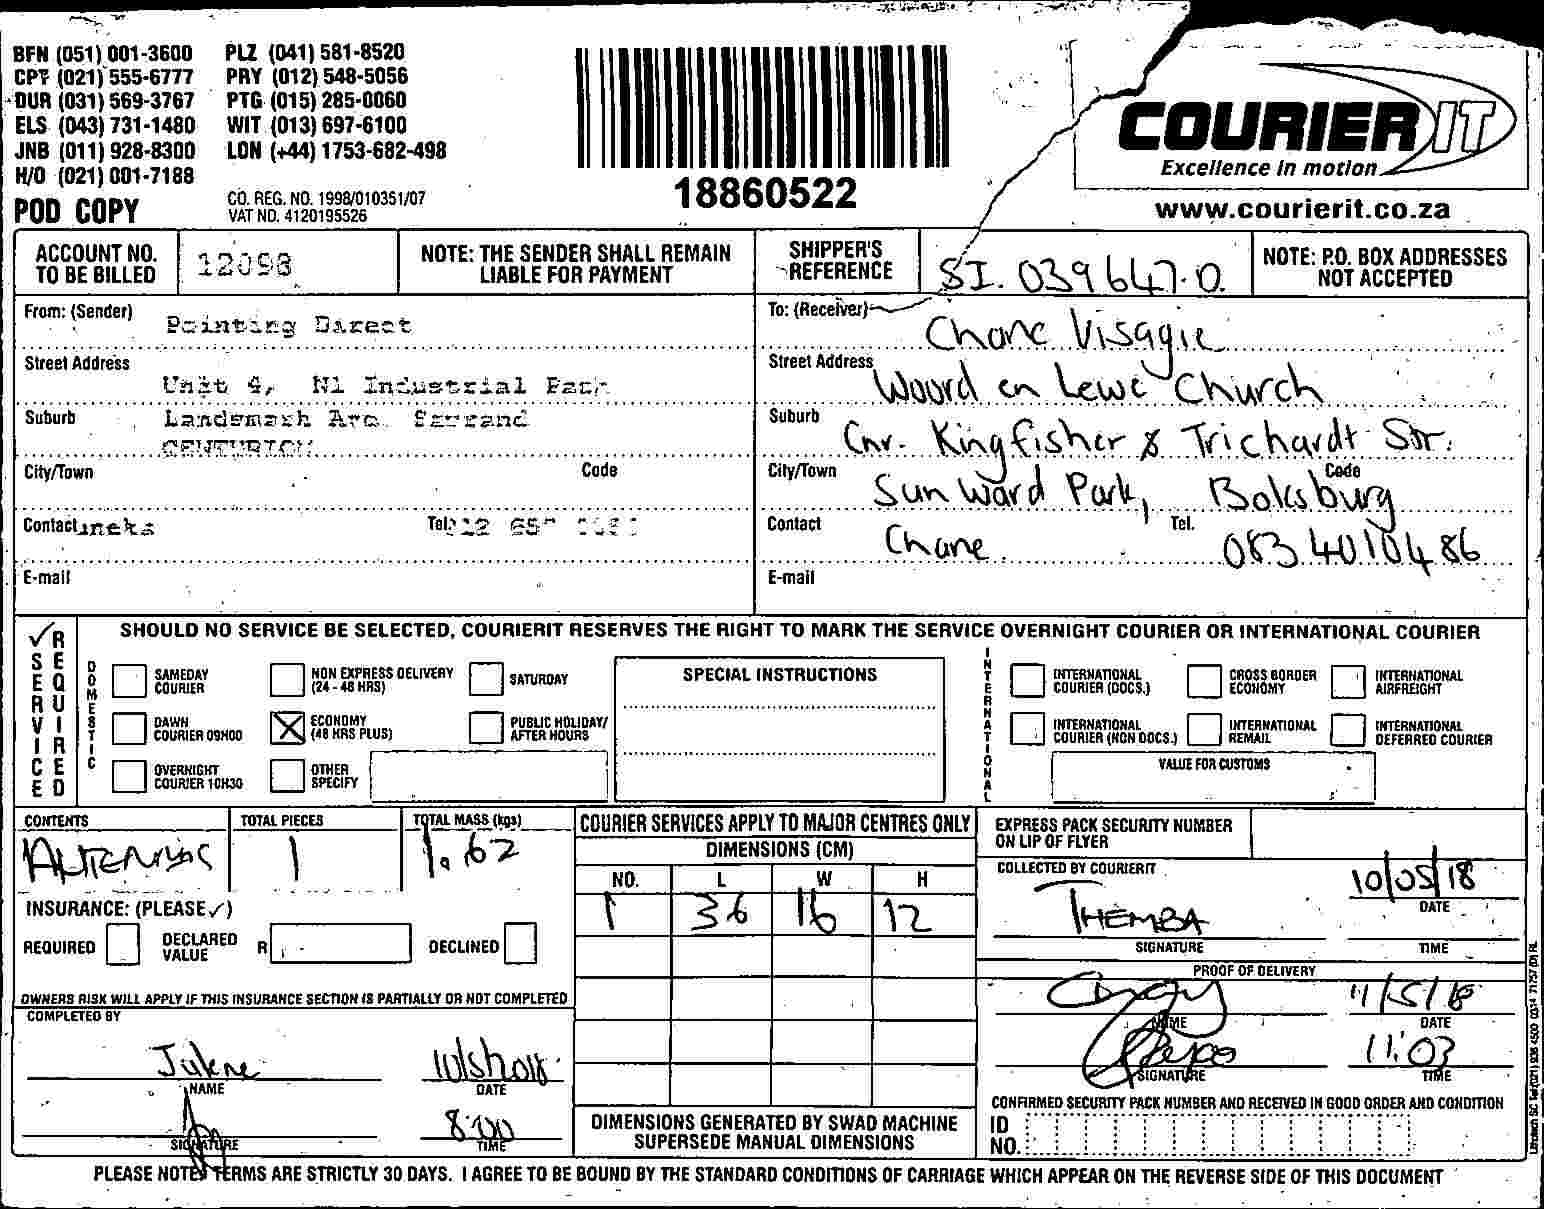 BFN (051) 001-3600 PLZ (041) 581-8520
CPT (021) 555-6777 PRY (012) 548-5056
DUR (031) 569-3767 PTG (015) 285-0060
ELS (043) 731-1480 WIT (013) 697-6100
JNB (011) 928-8300 LON (+44) 1753-682-498
H/O (021) 001-7188
CO. REG. NO. 1998/010351/07
POD COPY VAT NO. 4120195526
18860522
COURIER IT
Excellence in motion
www.courierit.co.za
ACCOUNT NO. TO BE BILLED 12098
NOTE: THE SENDER SHALL REMAIN LIABLE FOR PAYMENT
SHIPPER'S REFERENCE SI.039647.0.
NOTE: P.O. BOX ADDRESSES NOT ACCEPTED
From: (Sender) Printing Direct
Street Address Unit 4, N1 Industrial Park
Suburb Landsmark Ave. Samrand
CENTURION
City/Town Code
Contact Tel.
E-mail
To: (Receiver) Chane Visagie
Street Address Woord en Lewe Church
Suburb Cnr. Kingfisher & Trichardt Str.
City/Town Sunward Park, Boksburg Code
Contact Chane. Tel. 0834010486
E-mail
SERVICE REQUIRED
SHOULD NO SERVICE BE SELECTED, COURIERIT RESERVES THE RIGHT TO MARK THE SERVICE OVERNIGHT COURIER OR INTERNATIONAL COURIER
DOMESTIC
SAMEDAY COURIER
NON EXPRESS DELIVERY (24 - 48 HRS)
SATURDAY
DAWN COURIER 09H00
ECONOMY (48 HRS PLUS)
PUBLIC HOLIDAY/ AFTER HOURS
OVERNIGHT COURIER 10H30
OTHER SPECIFY
SPECIAL INSTRUCTIONS
INTERNATIONAL
INTERNATIONAL COURIER (DOCS.)
CROSS BORDER ECONOMY
INTERNATIONAL AIRFREIGHT
INTERNATIONAL COURIER (NON DOCS.)
INTERNATIONAL REMAIL
INTERNATIONAL DEFERRED COURIER
VALUE FOR CUSTOMS
CONTENTS
TOTAL PIECES 1
TOTAL MASS (kgs) 1.62
INSURANCE: (PLEASE ✓)
REQUIRED DECLARED VALUE R DECLINED
OWNERS RISK WILL APPLY IF THIS INSURANCE SECTION IS PARTIALLY OR NOT COMPLETED
COMPLETED BY
Julene 10/5/2018
NAME DATE
8:00
SIGNATURE TIME
COURIER SERVICES APPLY TO MAJOR CENTRES ONLY
DIMENSIONS (CM)
NO. L W H
1 36 16 12
DIMENSIONS GENERATED BY SWAD MACHINE SUPERSEDE MANUAL DIMENSIONS
EXPRESS PACK SECURITY NUMBER ON LIP OF FLYER
COLLECTED BY COURIERIT 10/05/18
DATE
THEMBA
SIGNATURE TIME
PROOF OF DELIVERY
11/5/18
NAME DATE
11:03
SIGNATURE TIME
CONFIRMED SECURITY PACK NUMBER AND RECEIVED IN GOOD ORDER AND CONDITION
ID NO.
PLEASE NOTE: TERMS ARE STRICTLY 30 DAYS. I AGREE TO BE BOUND BY THE STANDARD CONDITIONS OF CARRIAGE WHICH APPEAR ON THE REVERSE SIDE OF THIS DOCUMENT